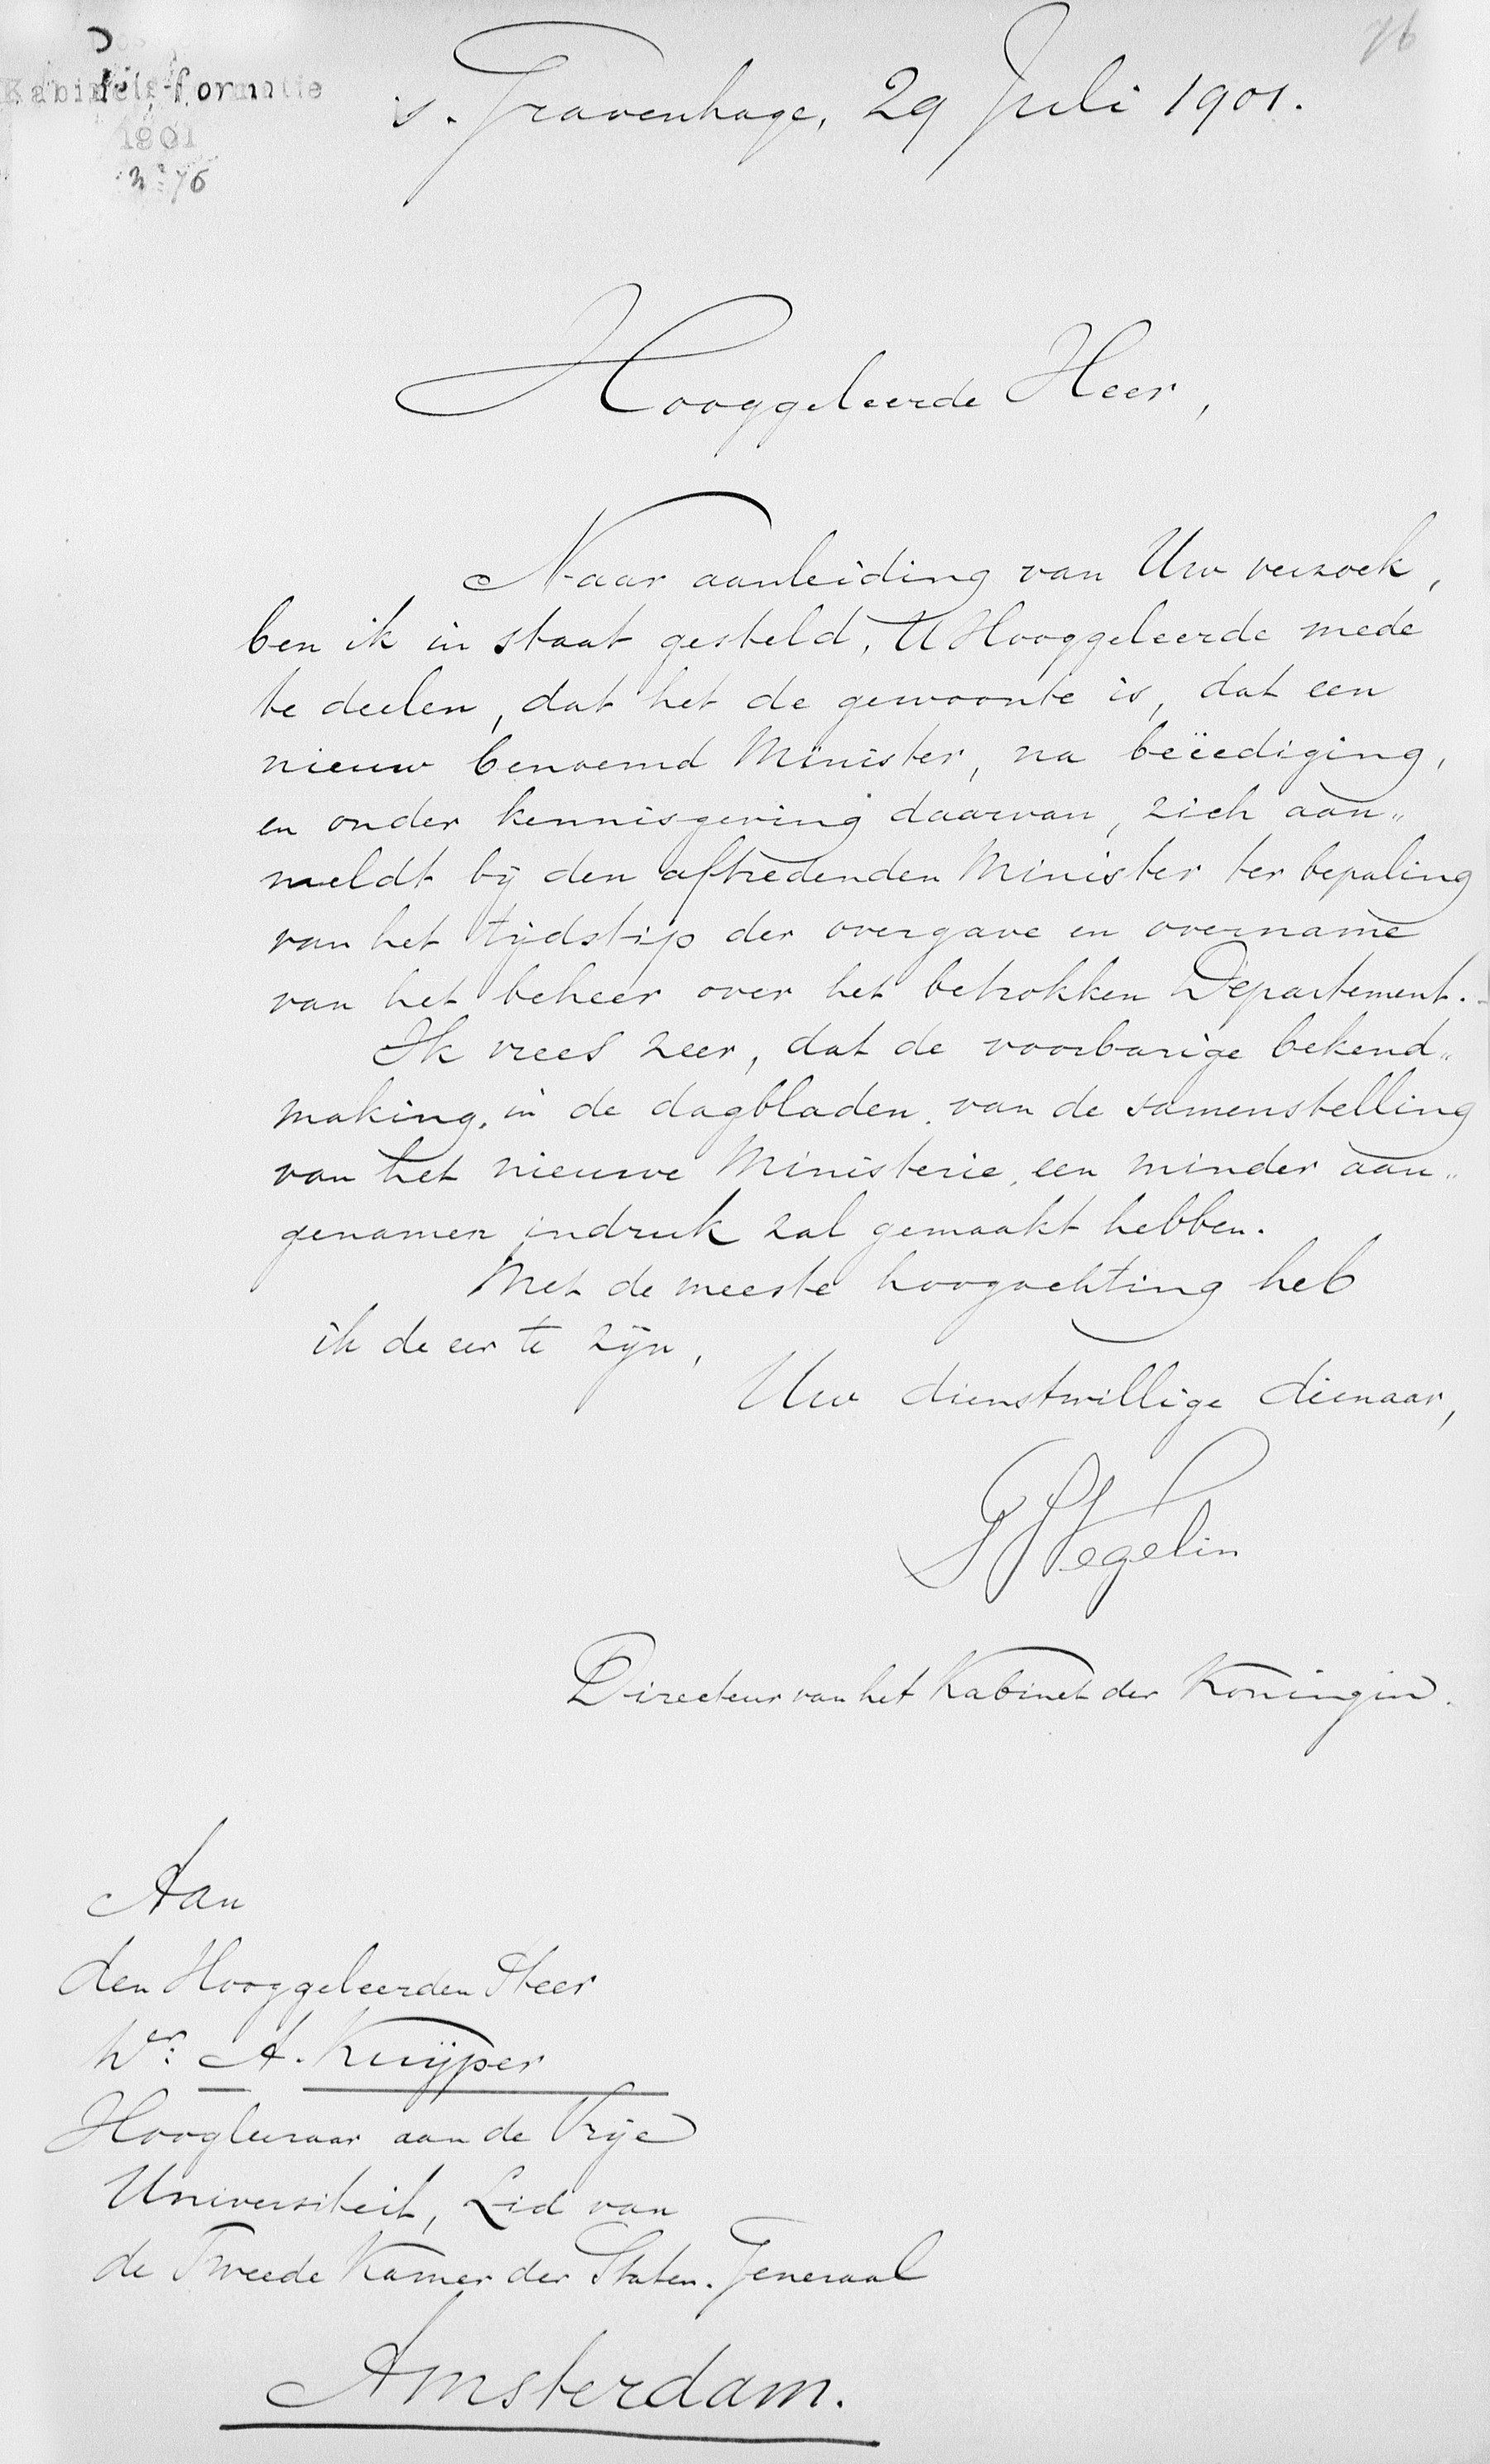 76
Kabinets-formatie
1901
nº 76
's Gravenhage, 29 Juli 1901.
Hooggeleerde Heer,
Naar aanleiding van Uw verzoek,
ben ik in staat gesteld, UHooggeleerde mede
te deelen, dat het de gewoonte is, dat een
nieuw benoemd Minister, na beëediging,
en onder kennisgeving daarvan, zich aan„
meldt bij den aftredenden Minister ter bepaling
van het tijdstip der overgave en overname
van het beheer over het betrokken Departement.
Ik vrees zeer, dat de voorbarige bekend„
making, in de dagbladen, van de samenstelling
van het nieuwe Ministerie, een minder aan„
genamen indruk zal gemaakt hebben.
Met de meeste hoogachting heb
ik de eer te zijn,
Uw dienstwillige dienaar,
P Vegelin
Directeur van het Kabinet der Koningin.
Aan
den Hooggeleerden Heer
Dr: A. Kuijper
Hoogleeraar aan de Vrije
Universiteit, Lid van
de Tweede Kamer der Staten-Generaal
Amsterdam.